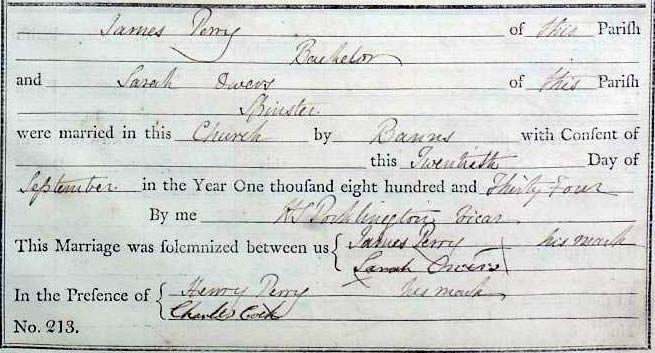 James Perry of this Parish
Bachelor
and Sarah Owers of this Parish
Spinster
were married in this Church by Banns with Consent of
this Twentieth Day of
September in the Year One thousand eight hundred and Thirty Four
By me Vicar
This Marriage was solemnized between us { James Perry his mark
Sarah Owers
In the Presence of { Henry Perry his mark
Charles Cock
No. 213.